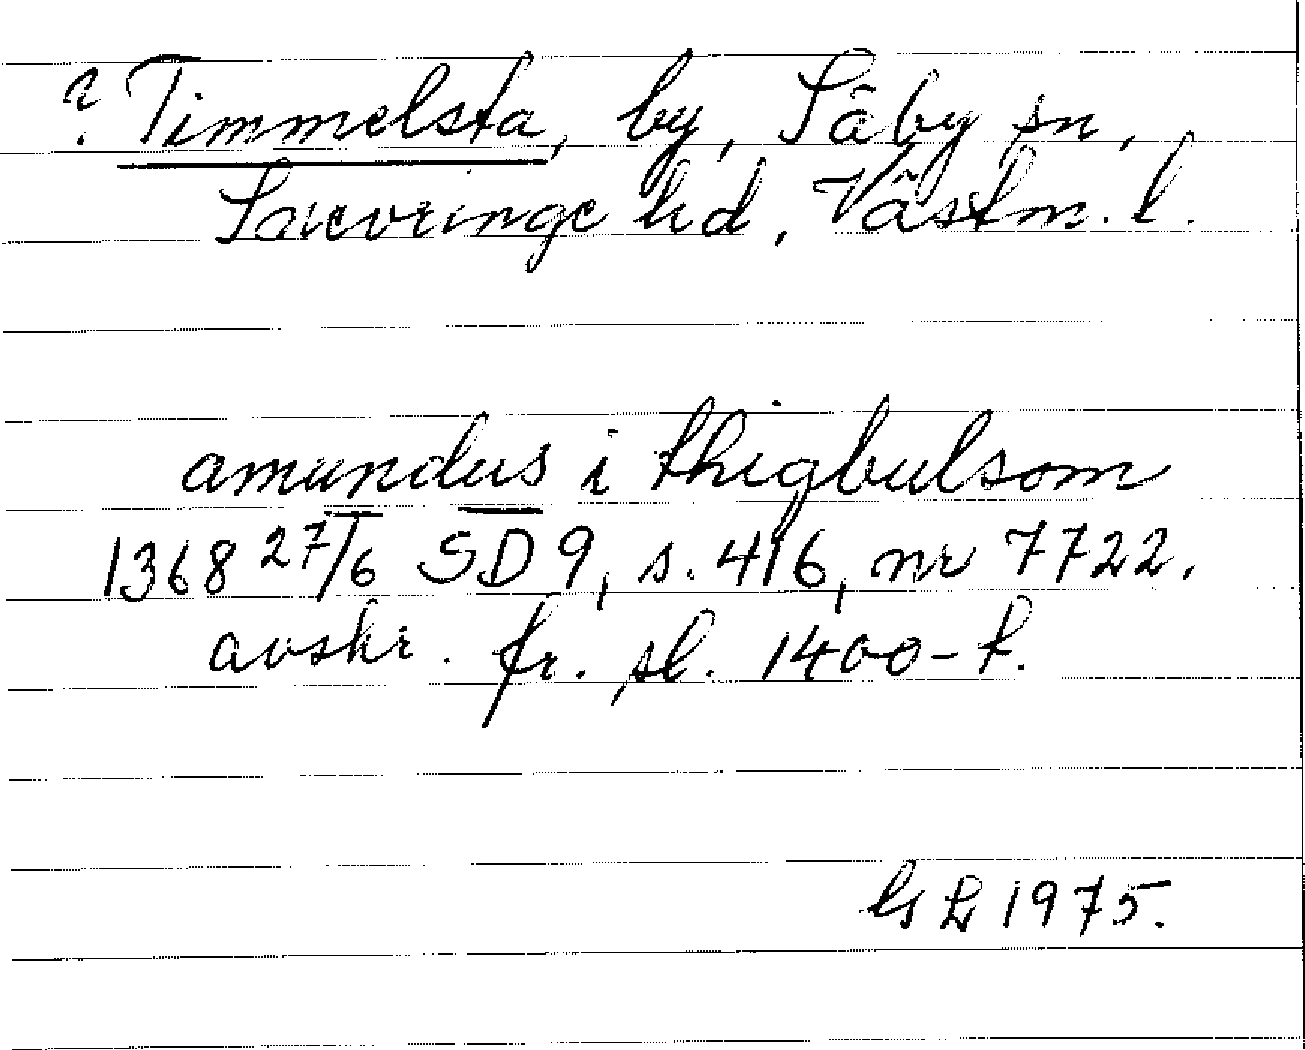 ? Timmelsta, by, Säby sn,
Snevringe hd, Västm. l.
amundus i thigbulsom
1368 27/6 SD 9, s. 416, nr 7722.
avskr. fr. sl. 1400-t.
GL 1975.